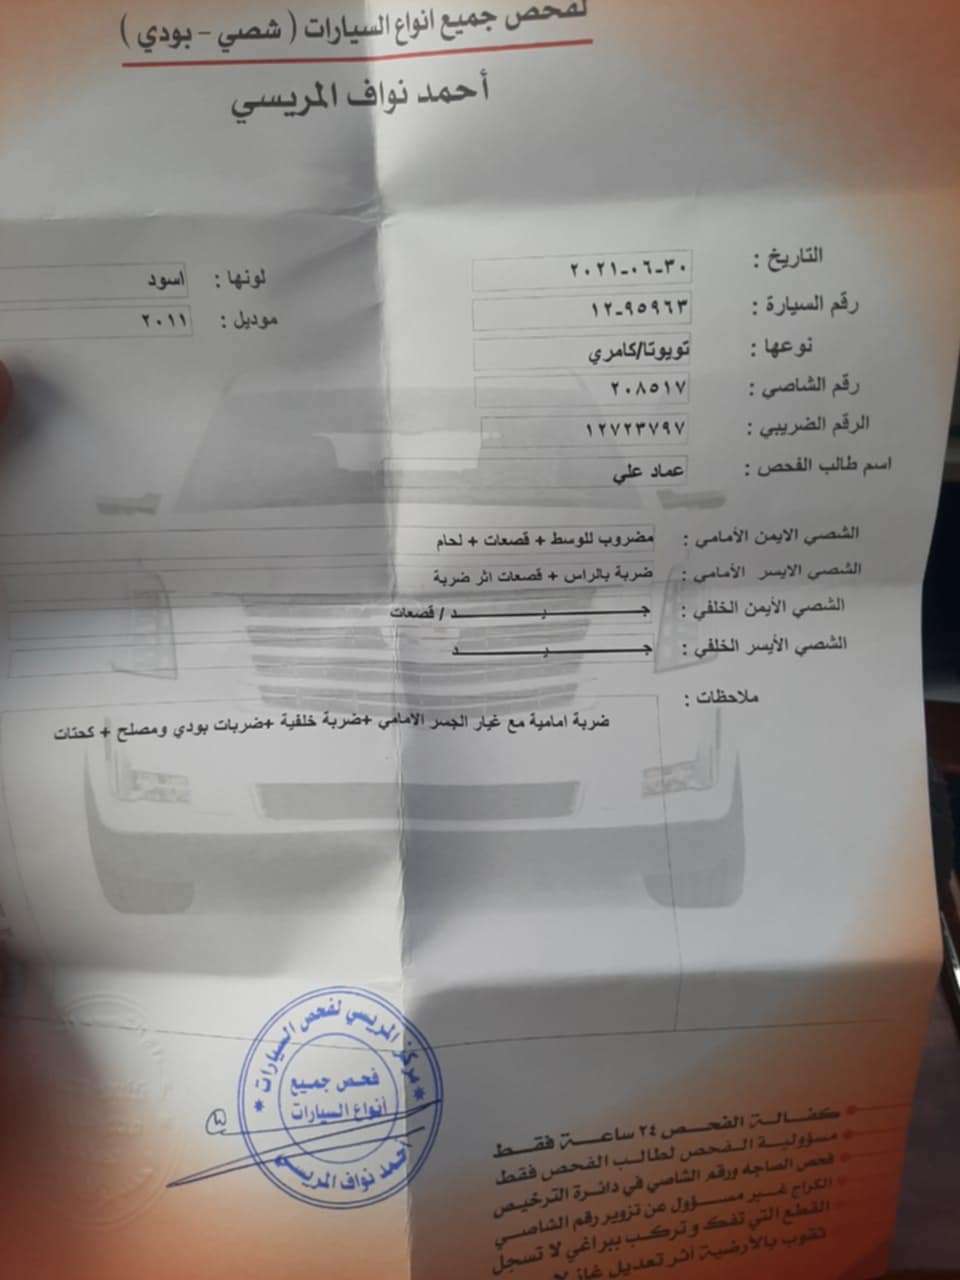 لفحص جميع انواع السيارات ( شصي - بودي )
أحمد نواف المريسي
التاريخ : ٣٠-٠٦-٢٠٢١
لونها : اسود
رقم السيارة : ٩٥٩٦٣-١٢
موديل : ٢٠١١
نوعها : تويوتا/كامري
رقم الشاصي : ٢٠٨٥١٧
الرقم الضريبي : ١٢٧٢٣٧٩٧
اسم طالب الفحص : عماد علي
الشصي الايمن الأمامي : مضروب للوسط + قصعات + لحام
الشصي الايسر الأمامي : ضربة بالراس + قصعات اثر ضربة
الشصي الأيمن الخلفي : جـــــيـــــد / قصعات
الشصي الأيسر الخلفي : جـــــيـــــد
ملاحظات :
ضربة امامية مع غيار الجسر الامامي +ضربة خلفية +ضربات بودي ومصلح + كحتات
مركز المريسي لفحص السيارات
فحص جميع
أنواع السيارات
أحمد نواف المريسي
كفـالـة الفحـص ٢٤ ساعـة فقـط
مسؤولية الفحص لطالب الفحص فقط
فحص الصاجه ورقم الشاصي في دائرة الترخيص
الكراج غير مسؤول عن تزوير رقم الشاصي
القطع التي تفك وتركب ببراغي لا تسجل
ثقوب بالأرضية أثر تعديل غاز